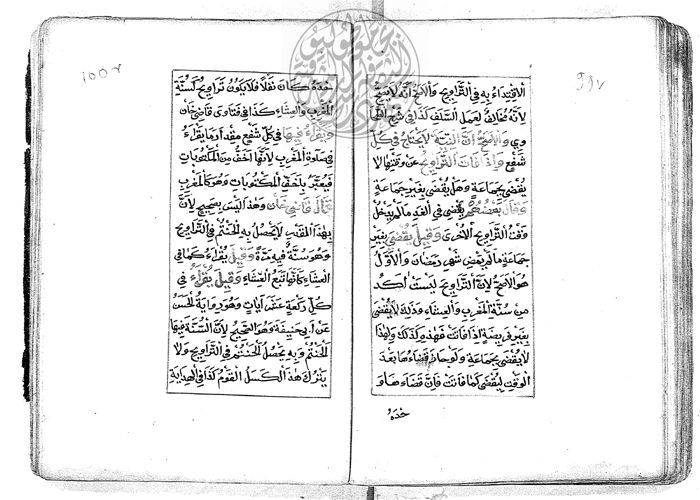 الاقتداء به في التراويح والاصح انه لا يصح
لانه مخالف لعمل السلف كذا في شرح الطحا
وي والاصح ان النية لا يحتاج في كل
شفع واذا فاتت التراويح عن وقتها لا
يقضى بجماعة وهل يقضى بغير جماعة
وقال بعضهم يقضى في الغد مالم يدخل
وقت التراويح الاخرى وقيل يقضى بغير
جماعة مالم يمض شهر رمضان والاول
هو الاصح لان التراويح ليست الكد
من سنة المغرب والعشاء وذلك لا يقضى
بغير فريضة اذا فاتت فهذه كذلك ولهذا
لا يقضى بجماعة ولو جاز قضاءها بعد
الوقت ليقضى كما فاتت فان قضاء ها و
حده
حده كان نفلا فلا يكون تراويح لسنة
المغرب والعشاء كذا في فتاوى قاضي خان
ويقراء فيها في كل شفع مقدار ما يقراء
في صلوة المغرب لانها اخف من المكتوبات
فيعتبر باخف المكتوبات وهو كالمغرب
قال قاضي خان وهذا ليس بصحيح لان
بهذا القدر لا يحصل به الختم في التراويح
وهو سنة فيه مرة وقيل يقراء كما في
العشاء كانها تبع العشاء وقيل يقراء في
كل ركعة عشر آيات وهو رواية الحسن
عن ابي حنيفة وهو الصحيح لان السنة فيها
الختم وبه يحصل الختم في التراويح ولا
يترك هذا لكسل القوم كذا في الهداية